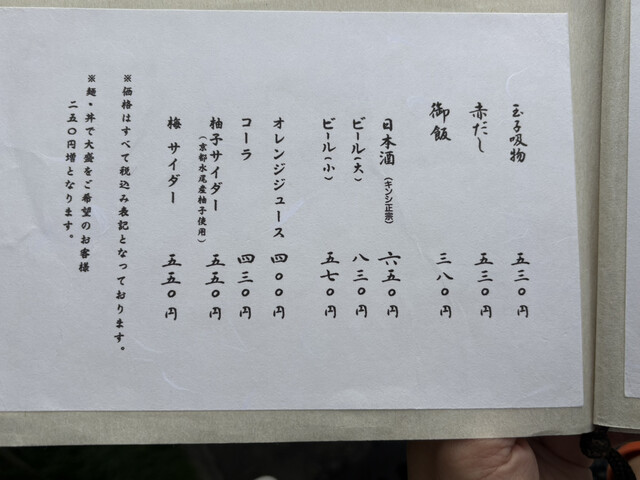 玉子吸物 五三〇円
赤だし 五三〇円
御飯 三八〇円
日本酒(キンシ正宗) 六五〇円
ビール(大) 八三〇円
ビール(小) 五七〇円
オレンジジュース 四〇〇円
コーラ 四三〇円
柚子サイダー 五五〇円
(京都水尾産柚子使用)
梅 サイダー 五五〇円
※価格はすべて税込み表記となっております。
※麺・丼で大盛をご希望のお客様
二五〇円増となります。